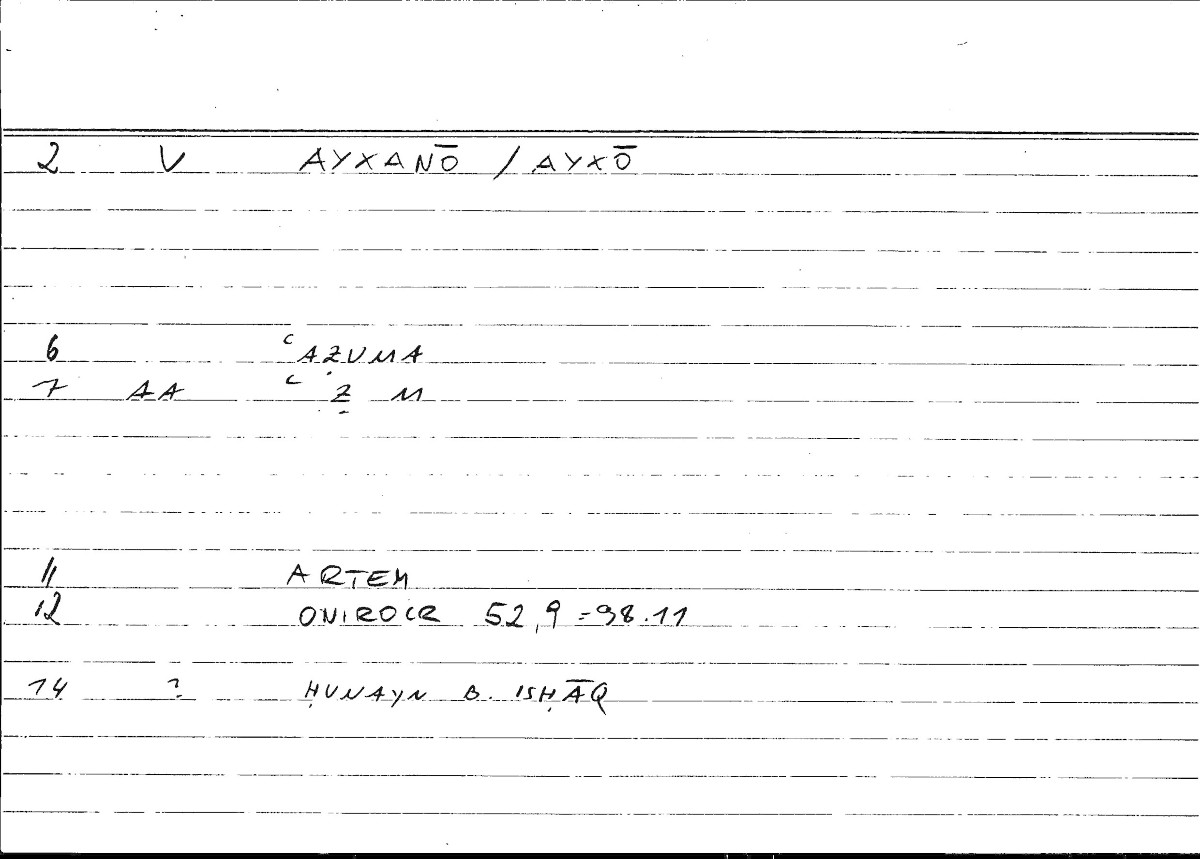 2 V AYXANŌ / AYXŌ
6 ʿAẒUMA
7 AA ʿ Ẓ M
11 ARTEM
12 ONIROCR 52,9 = 98.11
14 ? ḤUNAYN B. ISḤĀQ